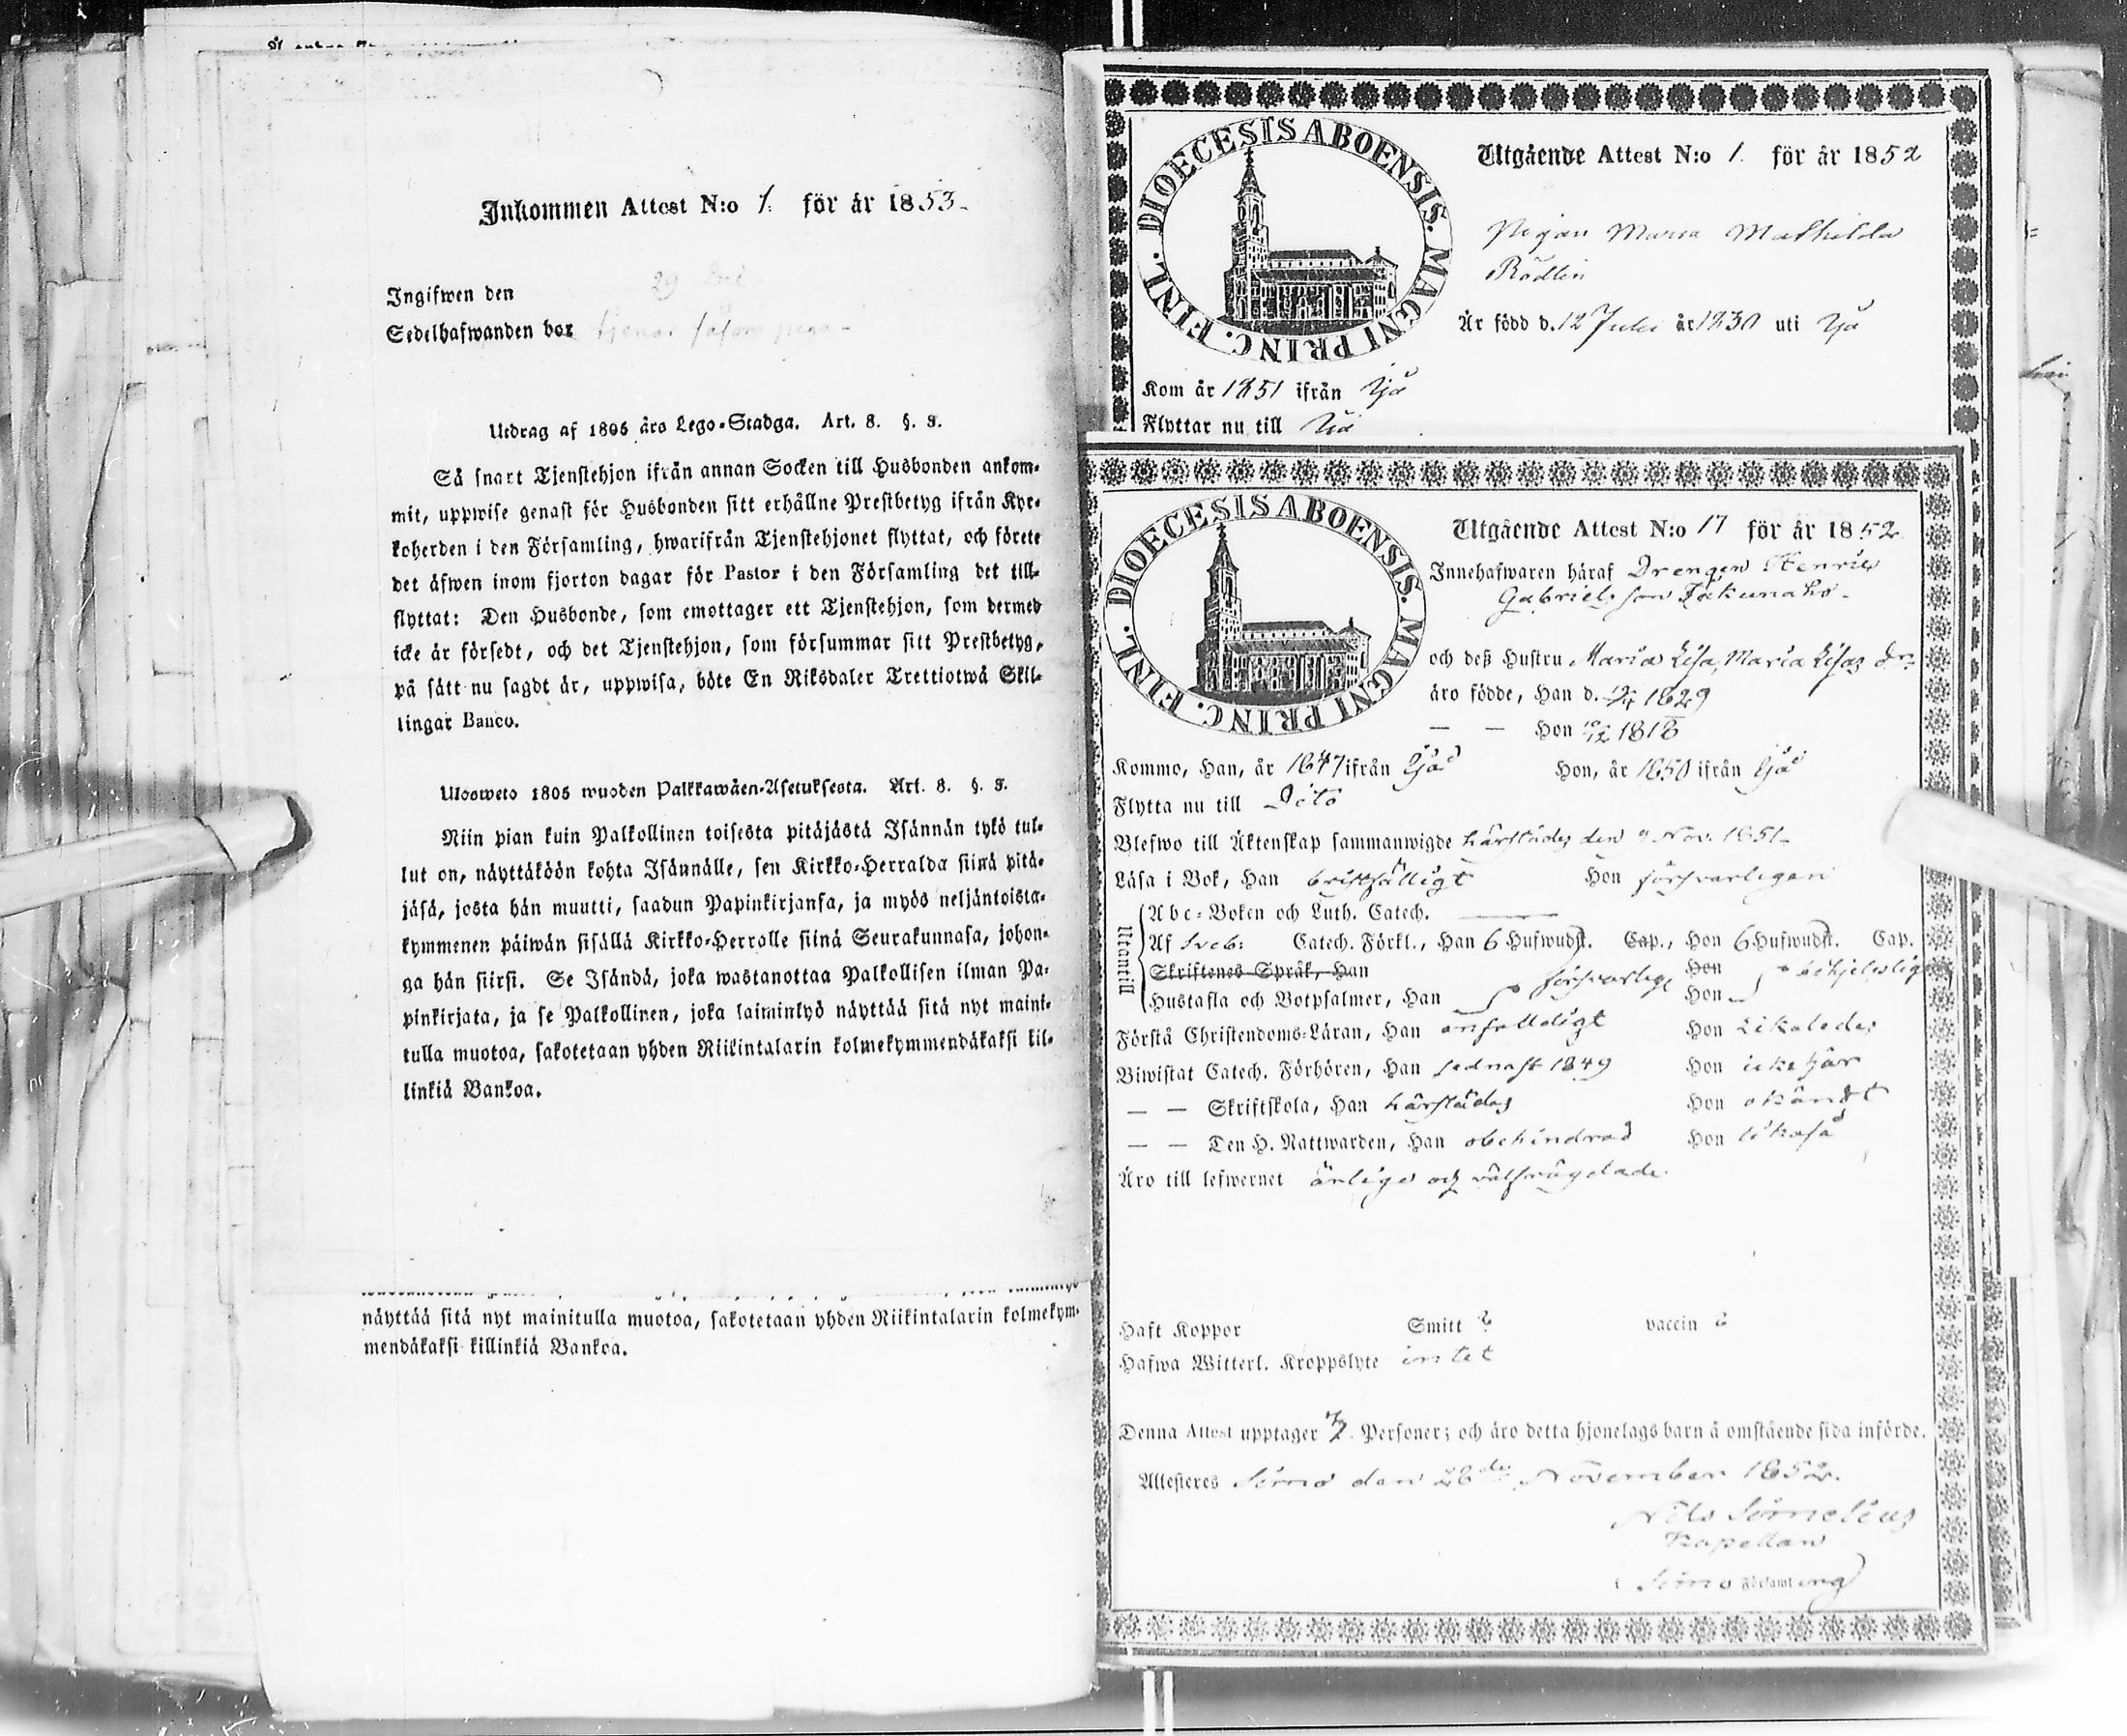 Inkommen Attest N:o 1. för år 1853.
Ingifwen den 29
Sedelhafwanden bor tjenar såsom piga
Utdrag af 1805 års Lego-Stadga. Art. 8. §. 3.
Så snart Tjenstehjon ifrån annan Socken till Husbonden ankom-
mit, uppwise genast för Husbonden sitt erhållne Prestbetyg ifrån Kyr-
koherden i den Församling, hwarifrån Tjenstehjonet flyttat, och förete
det äfwen inom fjorton dagar för Pastor i den Församling det till-
flyttat: Den Husbonde, som emottager ett Tjenstehjon, som dermed
icke är försedt, och det Tjenstehjon, som försummar sitt Prestbetyg,
på sätt nu sagdt är, uppwisa, böte En Riksdaler Trettiotwå Skil-
lingar Banco.
Ulosweto 1805 wuoden Palkkawäen-Asetuksesta. Art. 8. §. 3.
Niin pian kuin Palkollinen toisesta pitäjästä Isännän tykö tul-
lut on, näyttäköön kohta Isännälle, sen Kirkko-Herralda siinä pitä-
jäsä, josta hän muutti, saadun Papinkirjansa, ja myös neljäntoista-
kymmenen päiwän sisällä Kirkko-Herralle siinä Seurakunnasa, johon-
ga hän siirsi. Se Isändä, joka wastanottaa Palkollisen ilman Pa-
pinkirjata, ja se Palkollinen, joka laiminlyö näyttää sitä nyt maini-
tulla muotoa, sakotetaan yhden Riikintalarin kolmekymmendäkaksi kil-
linkiä Bankoa.
näyttää sitä nyt mainitulla muotoa, sakotetaan yhden Riikintalarin kolmekym-
mendäkaksi killinkiä Bankoa.
DIOECESIS ABOENSIS. MAGNI PRINC. FINL.
Utgående Attest N:o 1. för år 1852
Pigan Maria Mathilda
Rödlin
Är född d. 12 Juli år 1830 uti
Kom år 1851 ifrån
Flyttar nu till
DIOECESIS ABOENSIS. MAGNI PRINC. FINL.
Utgående Attest N:o 17 för år 1852
Innehafwaren häraf Drengen Henric
Gabrielsson
och deß Hustru Maria Lisa, Maria Lisas dr.
äro födde, Han d. 1829
— — Hon 1818
Kommo, Han, år 1847 ifrån Hon, år 1850 ifrån
Flytta nu till Dito
Blefwo till Äktenskap sammanwigde härstädes den 9 Nov. 1851
Läsa i Bok, Han bristfälligt Hon försvarligen
Utantill
Abc-Boken och Luth. Catech.
Af Sveb: Catech. Förkl., Han 6 Hufwudst. Cap., Hon 6 Hufwudst. Cap.
Skriftenes Språk, Han försvarlig Hon behjelpligt
Hustafla och Botpsalmer, Han Hon
Förstå Christendoms-Läran, Han enfalldigt Hon Likaledes
Biwistat Catech. Förhören, Han sednast 1849 Hon icke här
— — Skriftskola, Han härstädes Hon okändt
— — Den H. Nattwarden, Han obehindrad Hon likaså
Äro till lefwernet ärlige och välfrägdade.
Haft Koppor Smitt ? vaccin ?
Hafwa Witterl. Kroppslyte intet
Denna Attest upptager Personer; och äro detta hjonelags barn å omstående sida införde.
Attesteres Simo den 28de November 1852.
Nils Simelius
Kapellan
i Simo Församling